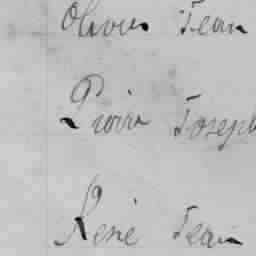 Olivier Jean
Pierre Joseph
René Jean